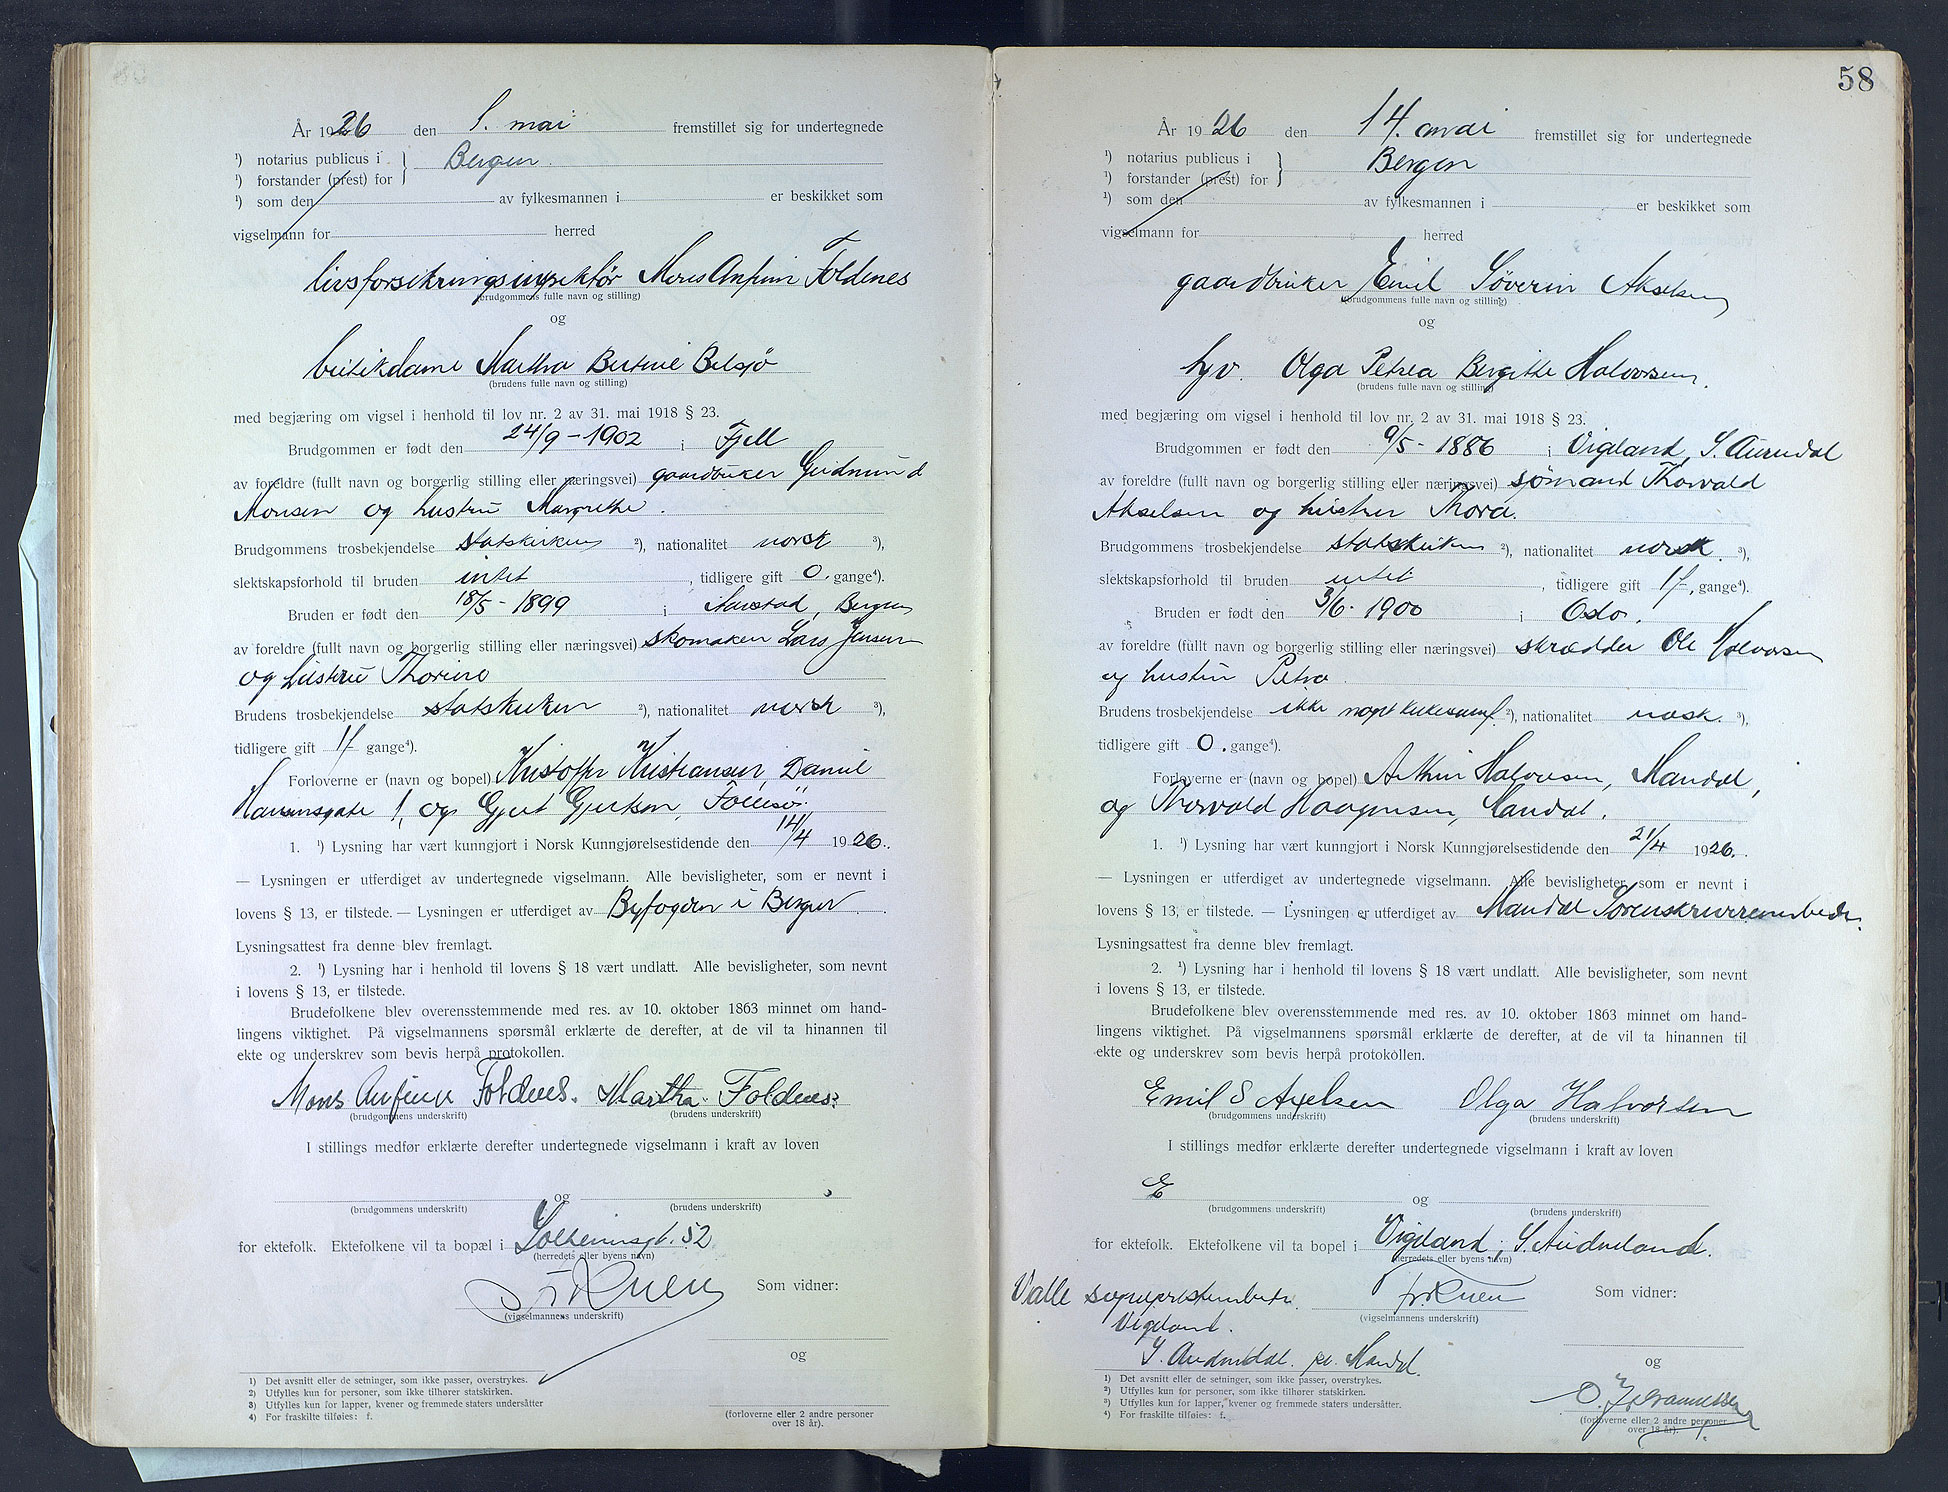 År 1926 den 1. mai fremstillet sig for undertegnede
¹) notarius publicus i } Bergen.
¹) forstander (prest) for
¹) som den av fylkesmannen i er beskikket som
vigselmann for herred
livsforsikringsinspektør Mons Anfinn Foldenes
(brudgommens fulle navn og stilling)
og
butikdame Martha Bertine Belsjø
(brudens fulle navn og stilling)
med begjæring om vigsel i henhold til lov nr. 2 av 31. mai 1918 § 23.
Brudgommen er født den 24/9 - 1902 i Fjell
av foreldre (fullt navn og borgerlig stilling eller næringsvei) gaardbruker Gudmund
Monsen og hustru Margrethe.
Brudgommens trosbekjendelse statskirken ²), nationalitet norsk ³),
slektskapsforhold til bruden intet, tidligere gift 0. gange⁴).
Bruden er født den 18/5 - 1899 i Aarstad, Bergen
av foreldre (fullt navn og borgerlig stilling eller næringsvei) skomaker Lars Jensen
og hustru Thorine
Brudens trosbekjendelse statskirken ²), nationalitet norsk ³),
tidligere gift 1f gange⁴).
Forloverne er (navn og bopel) Kristoffer Kristiansen, Daniel
Hansensgate 1, og Gjert Gjertsen,
1. ¹) Lysning har vært kunngjort i Norsk Kunngjørelsestidende den 14/4 1926.
— Lysningen er utferdiget av undertegnede vigselmann. Alle bevisligheter, som er nevnt i
lovens § 13, er tilstede. — Lysningen er utferdiget av Byfogden i Bergen.
Lysningsattest fra denne blev fremlagt.
2. ¹) Lysning har i henhold til lovens § 18 vært undlatt. Alle bevisligheter, som nevnt
i lovens § 13, er tilstede.
Brudefolkene blev overensstemmende med res. av 10. oktober 1863 minnet om hand-
lingens viktighet. På vigselmannens spørsmål erklærte de derefter, at de vil ta hinannen til
ekte og underskrev som bevis herpå protokollen.
Mons Anfinn Foldnes. Martha Foldnes.
(brudgommens underskrift) (brudens underskrift)
I stillings medfør erklærte derefter undertegnede vigselmann i kraft av loven
og
(brudgommens underskrift) (brudens underskrift)
for ektefolk. Ektefolkene vil ta bopæl i Solheimsgt. 52
(herredets eller byens navn)
Som vidner:
(vigselmannens underskrift)
og
1) Det avsnitt eller de setninger, som ikke passer, overstrykes.
2) Utfylles kun for personer, som ikke tilhører statskirken.
3) Utfylles kun for lapper, kvener og fremmede staters undersåtter
4) For fraskilte tilføies: f.
(forloverne eller 2 andre personer
over 18 år).
58
År 1926 den 14. mai fremstillet sig for undertegnede
¹) notarius publicus i } Bergen
¹) forstander (prest) for
¹) som den av fylkesmannen i er beskikket som
vigselmann for herred
gaardbruker Emil Søverin Akselsen
(brudgommens fulle navn og stilling)
og
hjv. Olga Petrea Bergitte Halvorsen.
(brudens fulle navn og stilling)
med begjæring om vigsel i henhold til lov nr. 2 av 31. mai 1918 § 23.
Brudgommen er født den 9/5 - 1886 i Vigeland, S. Audnedal
av foreldre (fullt navn og borgerlig stilling eller næringsvei) sømand Thorvald
Akselsen og hustru Thora.
Brudgommens trosbekjendelse statskirken ²), nationalitet norsk ³),
slektskapsforhold til bruden intet, tidligere gift 1f, gange⁴).
Bruden er født den 3/6 - 1900 i Oslo.
av foreldre (fullt navn og borgerlig stilling eller næringsvei) skrædder Ole Halvorsen
og hustru Petra
Brudens trosbekjendelse ikke noget kirkesamf. ²), nationalitet norsk. ³),
tidligere gift 0. gange⁴).
Forloverne er (navn og bopel) Arthur Halvorsen, Mandal,
og Thorvald Haagensen, Mandal.
1. ¹) Lysning har vært kunngjort i Norsk Kunngjørelsestidende den 21/4 1926.
— Lysningen er utferdiget av undertegnede vigselmann. Alle bevisligheter, som er nevnt i
lovens § 13, er tilstede. — Lysningen er utferdiget av Mandal Sorenskriverembede.
Lysningsattest fra denne blev fremlagt.
2. ¹) Lysning har i henhold til lovens § 18 vært undlatt. Alle bevisligheter, som nevnt
i lovens § 13, er tilstede.
Brudefolkene blev overensstemmende med res. av 10. oktober 1863 minnet om hand-
lingens viktighet. På vigselmannens spørsmål erklærte de derefter, at de vil ta hinannen til
ekte og underskrev som bevis herpå protokollen.
Emil S Axelsen Olga Halvorsen
(brudgommens underskrift) (brudens underskrift)
I stillings medfør erklærte derefter undertegnede vigselmann i kraft av loven
E og
(brudgommens underskrift) (brudens underskrift)
for ektefolk. Ektefolkene vil ta bopel i Vigeland, S. Audneland.
(herredets eller byens navn)
Valle sogneprestembede. Som vidner:
Vigeland. (vigselmannens underskrift)
S. Audnedal. pr. Mandal. og
1) Det avsnitt eller de setninger, som ikke passer, overstrykes.
2) Utfylles kun for personer, som ikke tilhører statskirken.
3) Utfylles kun for lapper, kvener og fremmede staters undersåtter.
4) For fraskilte tilføies: f.
O. Johannessen
(forloverne eller 2 andre personer
over 18 år).